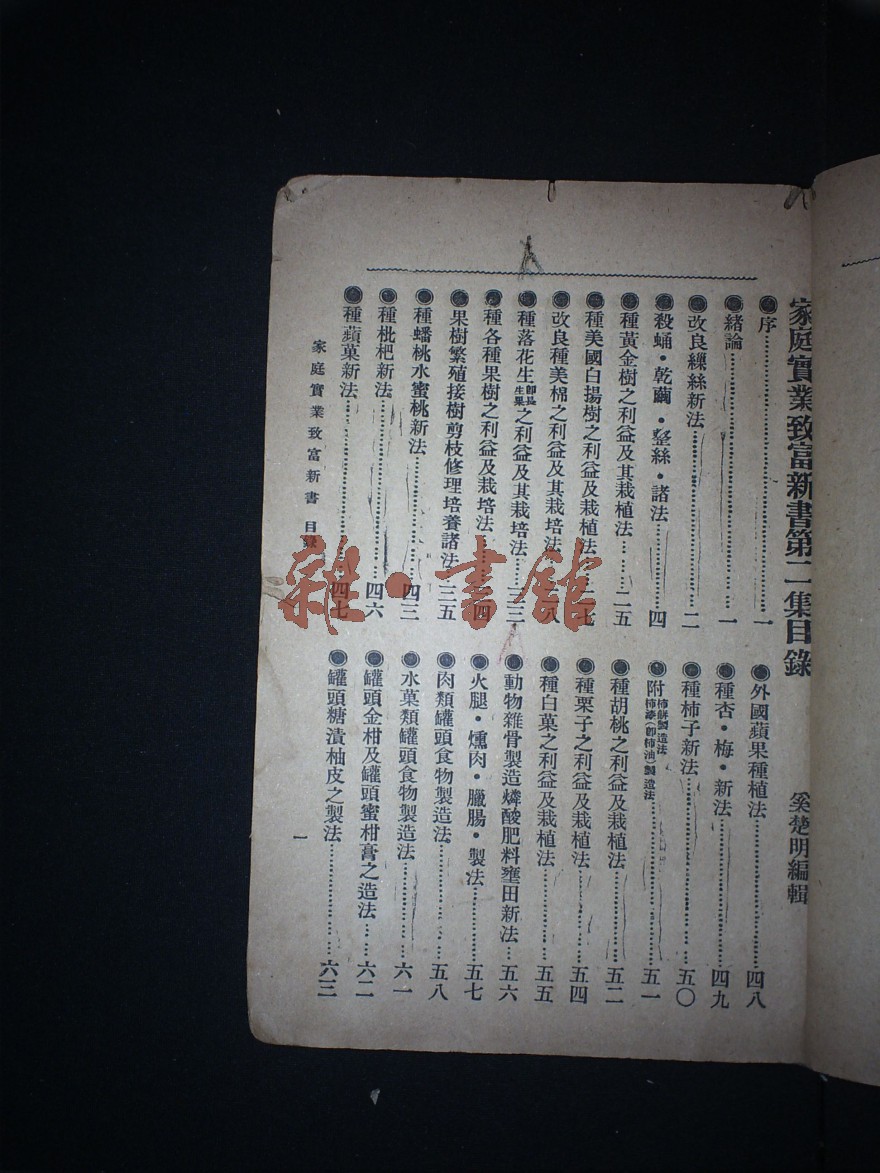 家庭實業致富新書第二集目錄
奚楚明編輯
●序……一
●緒論……一
●改良繅絲新法……二
●殺蛹・乾繭・整絲・諸法……四
●種黃金樹之利益及其栽植法……二五
●種美國白揚樹之利益及栽植法……七
●改良種美棉之利益及其栽培法……八
●種落花生即長生果之利益及其栽培法……三三
●種各種果樹之利益及栽培法……四
●果樹繁殖接樹剪枝修理培養諸法……三五
●種蟠桃水蜜桃新法……四三
●種枇杷新法……四六
●種蘋菓新法……四七
●外國蘋果種植法……四八
●種杏・梅・新法……四九
●種柿子新法……五〇
●附柿餅製造法柿漆(卽柿油)製造法……五一
●種胡桃之利益及栽植法……五二
●種栗子之利益及栽植法……五四
●種白菓之利益及栽植法……五五
●動物雜骨製造燐酸肥料壅田新法……五六
●火腿・燻肉・臘腸・製法……五七
●肉類罐頭食物製造法……五八
●水菓類罐頭食物製造法……六一
●罐頭金柑及罐頭蜜柑膏之造法……六二
●罐頭糖漬柚皮之製法……六三
家庭實業致富新書 目錄
一
雜・書館